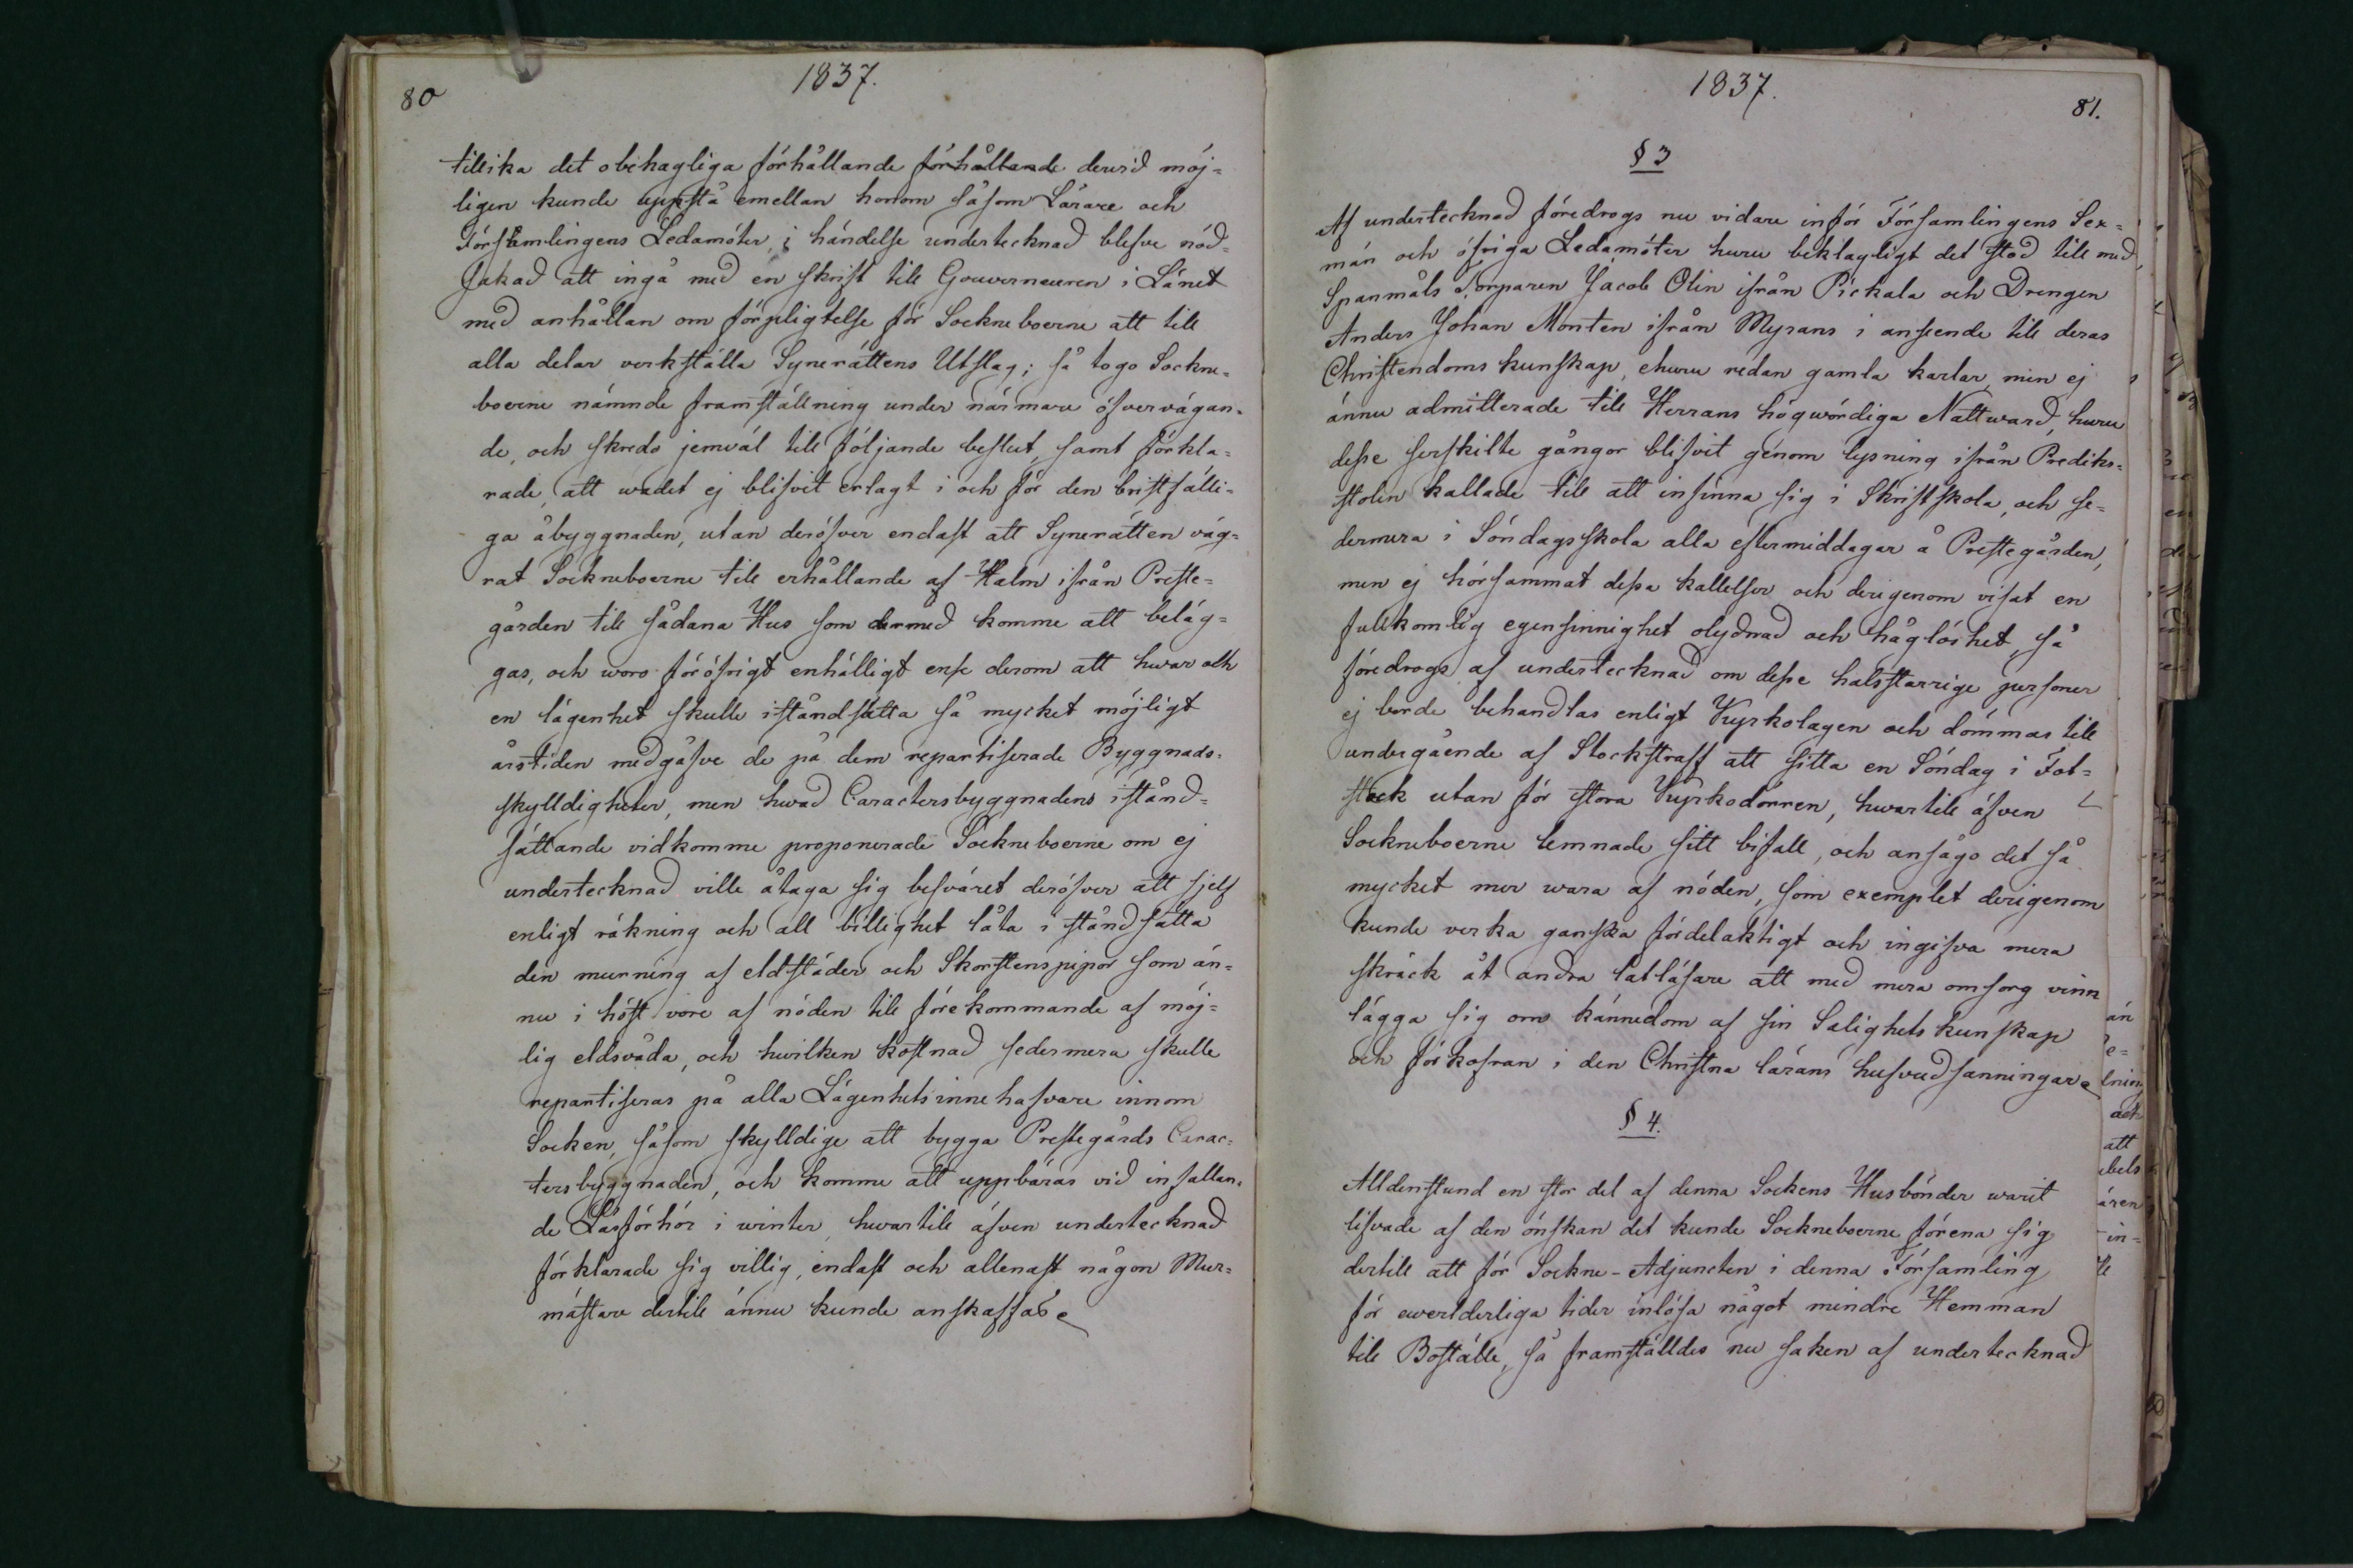 80
1837.
tillika det obehagliga förhållande förhållande derwid möj=
ligen kunde uppstå emellan honom såsom Lärare och
Församlingens Ledamöter, i händelse undertecknad blefve nöd=
sakad att ingå med en skrift till Gouverneuren i Länet
med anhållan om förpligtelse för Sockneboerne att till
alla delar verkställa Synerättens Utslag; så togo Sockne=
boerne nämnde framställning under närmare öfvervägan=
de, och skredo jemväl till följande beslut, samt förkla=
rade, att wadet ej blifvit erlagt i och för den bristfälli=
ga åbyggnaden, utan deröfver endast att Synerätten väg=
rat Sockneboerne till erhållande af Halm ifrån Preste=
gården till sådana Hus som dermed komme att beläg=
gas, och woro föröfrigt enhälligt ense derom att hwar och
en lägenhet skulle iståndsätta så mycket möjligt
årstiden medgåfve de på dem repartiserade Byggnads=
skylldigheter, men hwad Caractersbyggnadens istånd=
sättande vidkomme proponerade Sockneboerne om ej
undertecknad ville åtaga sig besväret deröfver att sjelf
enligt räkning och all billighet låta i ståndsätta
den murning af eldstäder och Skorstenspipor som än=
nu i höst vore af nöden till förekommande af möj=
lig eldsvåda, och hwilken kostnad sedermera skulle
repartiseras på alla Lägenhetsinnehafvare innom
Socken, såsom skylldige att bygga Prestegårds Carac=
tersbyggnaden, och komme att uppbäras vid infallan=
de Läsförhör i winter, hwartill äfven undertecknad
förklarade sig villig, endast och allenast någon Mur=
mästare dertill ännu kunde anskaffas
1837.
81.
§ 3
Af undertecknad föredrogs nu vidare inför Församlingens Sex=
män och öfriga Ledamöter huru beklagligt det stod till med
Spanmåls Torparen Jacob Olin ifrån Pickala och Drengen
Anders Johan Monten ifrån Myrans i anseende till deras
Christendoms kunskap, ehuru redan gamla karlar, men ej
ännu admitterade till Herrans högwördiga Nattward, huru
desse serskilte gångor blifvit genom lysning ifrån Prediks=
stolen kallade till att infinna sig i Skriftskola, och se=
dermera i Söndagsskola alla eftermiddagar å Prestegården,
men ej hörsammat dessa kallelser och derigenom visat en
fullkomlig egensinnighet olydnad och håglöshet, så
föredrogs af undertecknad om desse halsstarrige personer
ej borde behandlas enligt Kyrkolagen och dömmas till
undergående af Stockstraff att sitta en Söndag i Fot=
stock utan för stora Kyrkodörren, hwartill äfven
Sockneboerne lemnade sitt bifall, och ansågo det så
mycket mer wara af nöden, som exemplet derigenom
kunde verka ganska fördelaktigt och ingifva mera
skräck åt andra latläsare att med mera omsorg vinn
lägga sig om kännedom af sin Salighets kunskap
och förkofran i den Christna lärans hufvudsanningar
§ 4.
Alldenstund en stor del af denna Sockens Husbönder warit
lifvade af den önskan det kunde Sockneboerne förena sig
dertill att för Sockne-Adjuncten i denna Församling
för ewerlderliga tider inlösa något mindre Hemman
till Boställe, så framställdes nu saken af undertecknad